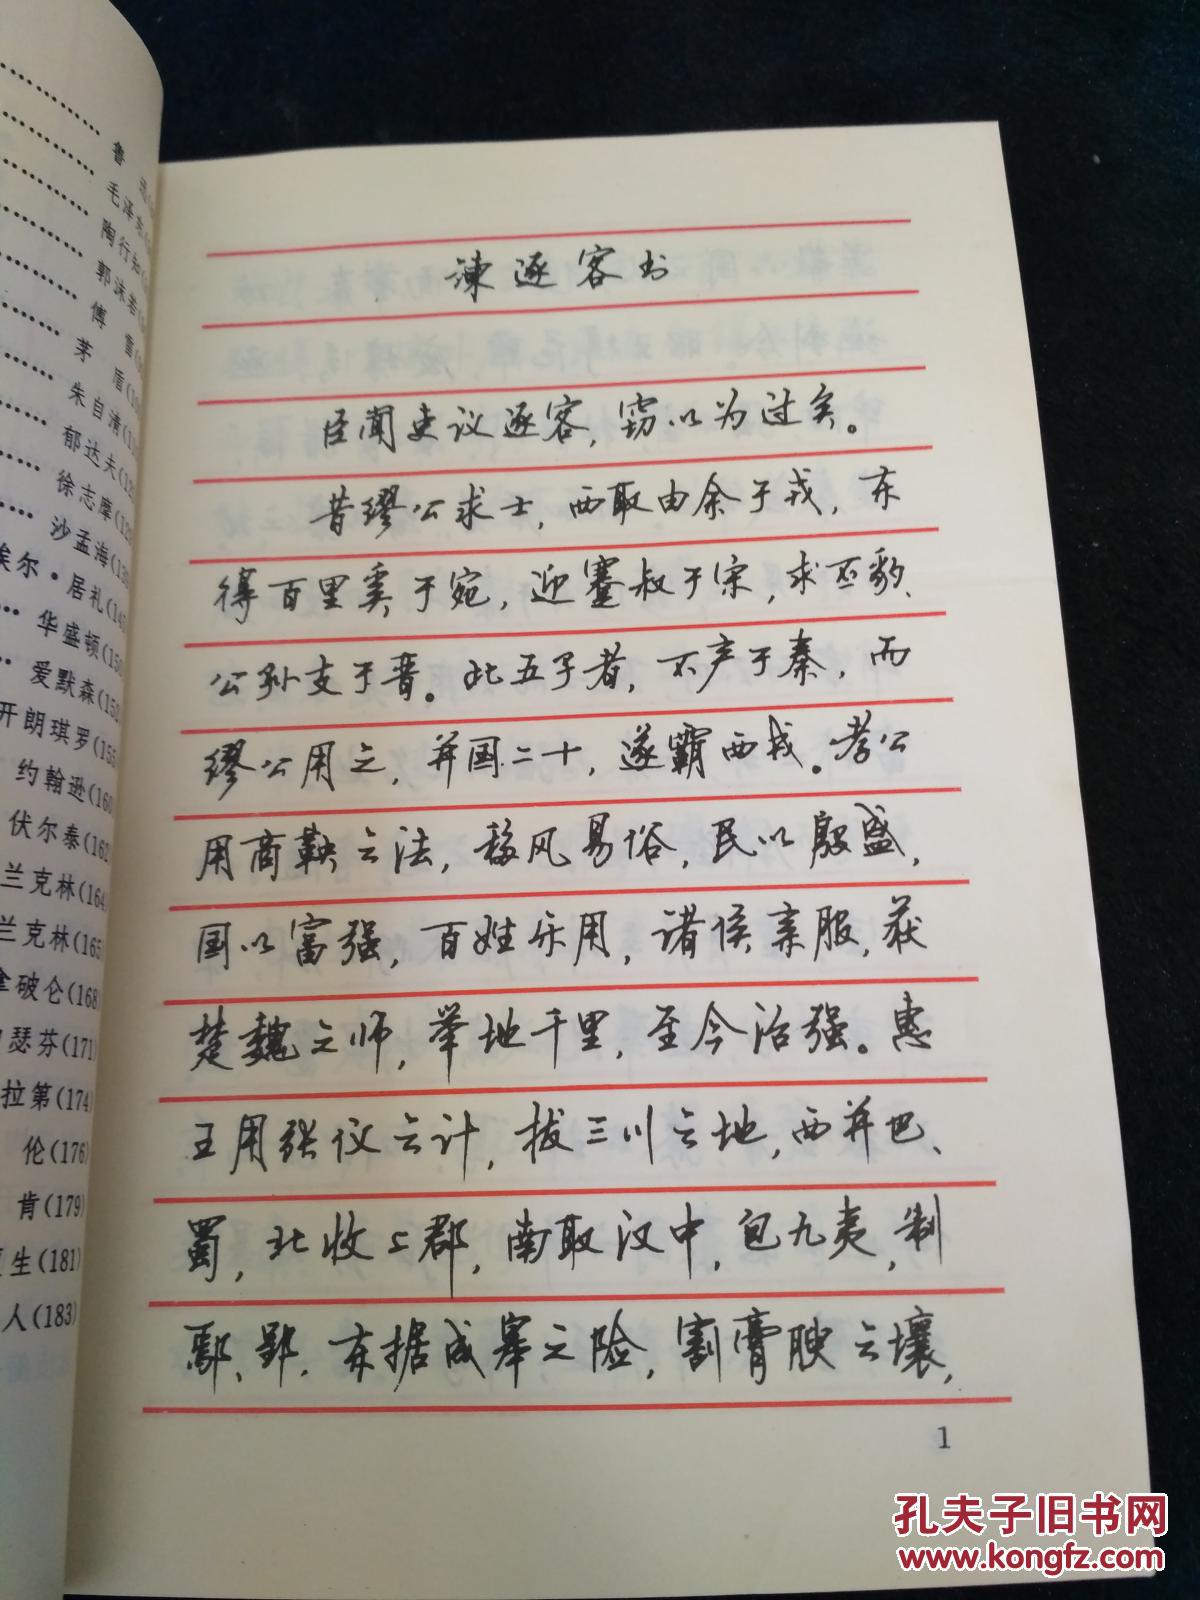 谏逐客书
臣闻吏议逐客，窃以为过矣。
昔缪公求士，西取由余于戎，东
得百里奚于宛，迎蹇叔于宋，求丕豹、
公孙支于晋。此五子者，不产于秦，而
缪公用之，并国二十，遂霸西戎。孝公
用商鞅之法，移风易俗，民以殷盛，
国以富强，百姓乐用，诸侯亲服，获
楚魏之师，举地千里，至今治强。惠
王用张仪之计，拔三川之地，西并巴、
蜀，北收上郡，南取汉中，包九夷，制
鄢、郢，东据成皋之险，割膏腴之壤，
1
鲁
毛泽东
陶行知
郭沫若
傅雷
茅盾
朱自清
郁达夫(12
徐志摩(12
沙孟海(13
埃尔·居礼(14
华盛顿(150
爱默森(152
开朗琪罗(155
约翰逊(160
伏尔泰(162
兰克林(164)
兰克林(165
拿破仑(168)
瑟芬(171)
拉第(174)
伦(176)
肯(179)
生(181)
人(183)
孔夫子旧书网
www.kongfz.com